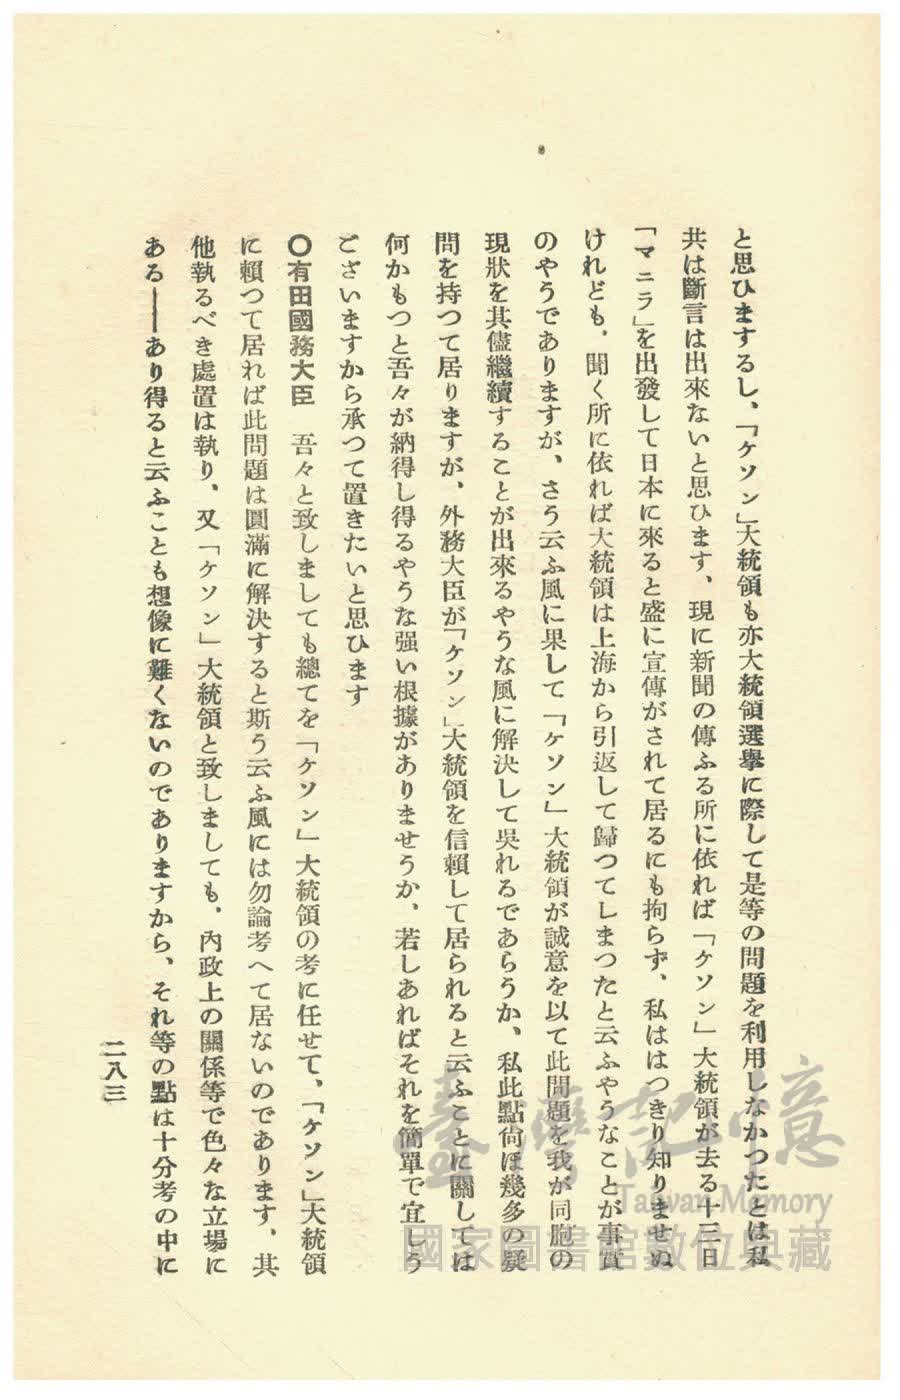 と思ひまするし、「ケソン」大統領も亦大統領選擧に際して是等の問題を利用しなかつたとは私
共は斷言は出來ないと思ひます、現に新聞の傳ふる所に依れば「ケソン」大統領が去る十三日
「マニラ」を出發して日本に來ると盛に宣傳がされて居るにも拘らず、私ははつきり知りませぬ
けれども、聞く所に依れば大統領は上海から引返して歸つてしまつたと云ふやうなことが事實
のやうでありますが、さう云ふ風に果して「ケソン」大統領が誠意を以て此問題を我が同胞の
現狀を其儘繼續することが出來るやうな風に解決して吳れるであらうか、私此點尙ほ幾多の疑
問を持つて居りますが、外務大臣が「ケソン」大統領を信賴して居られると云ふことに關しては
何かもつと吾々が納得し得るやうな强い根據がありませうか、若しあればそれを簡單で宜しう
ございますから承つて置きたいと思ひます
〇有田國務大臣　吾々と致しましても總てを「ケソン」大統領の考に任せて、「ケソン」大統領
に賴つて居れば此問題は圓滿に解決すると斯う云ふ風には勿論考へて居ないのであります、其
他執るべき處置は執り、又「ケソン」大統領と致しましても、內政上の關係等で色々な立場に
ある――あり得ると云ふことも想像に難くないのでありますから、それ等の點は十分考の中に
二八三
臺灣記憶
Taiwan Memory
國家圖書館數位典藏